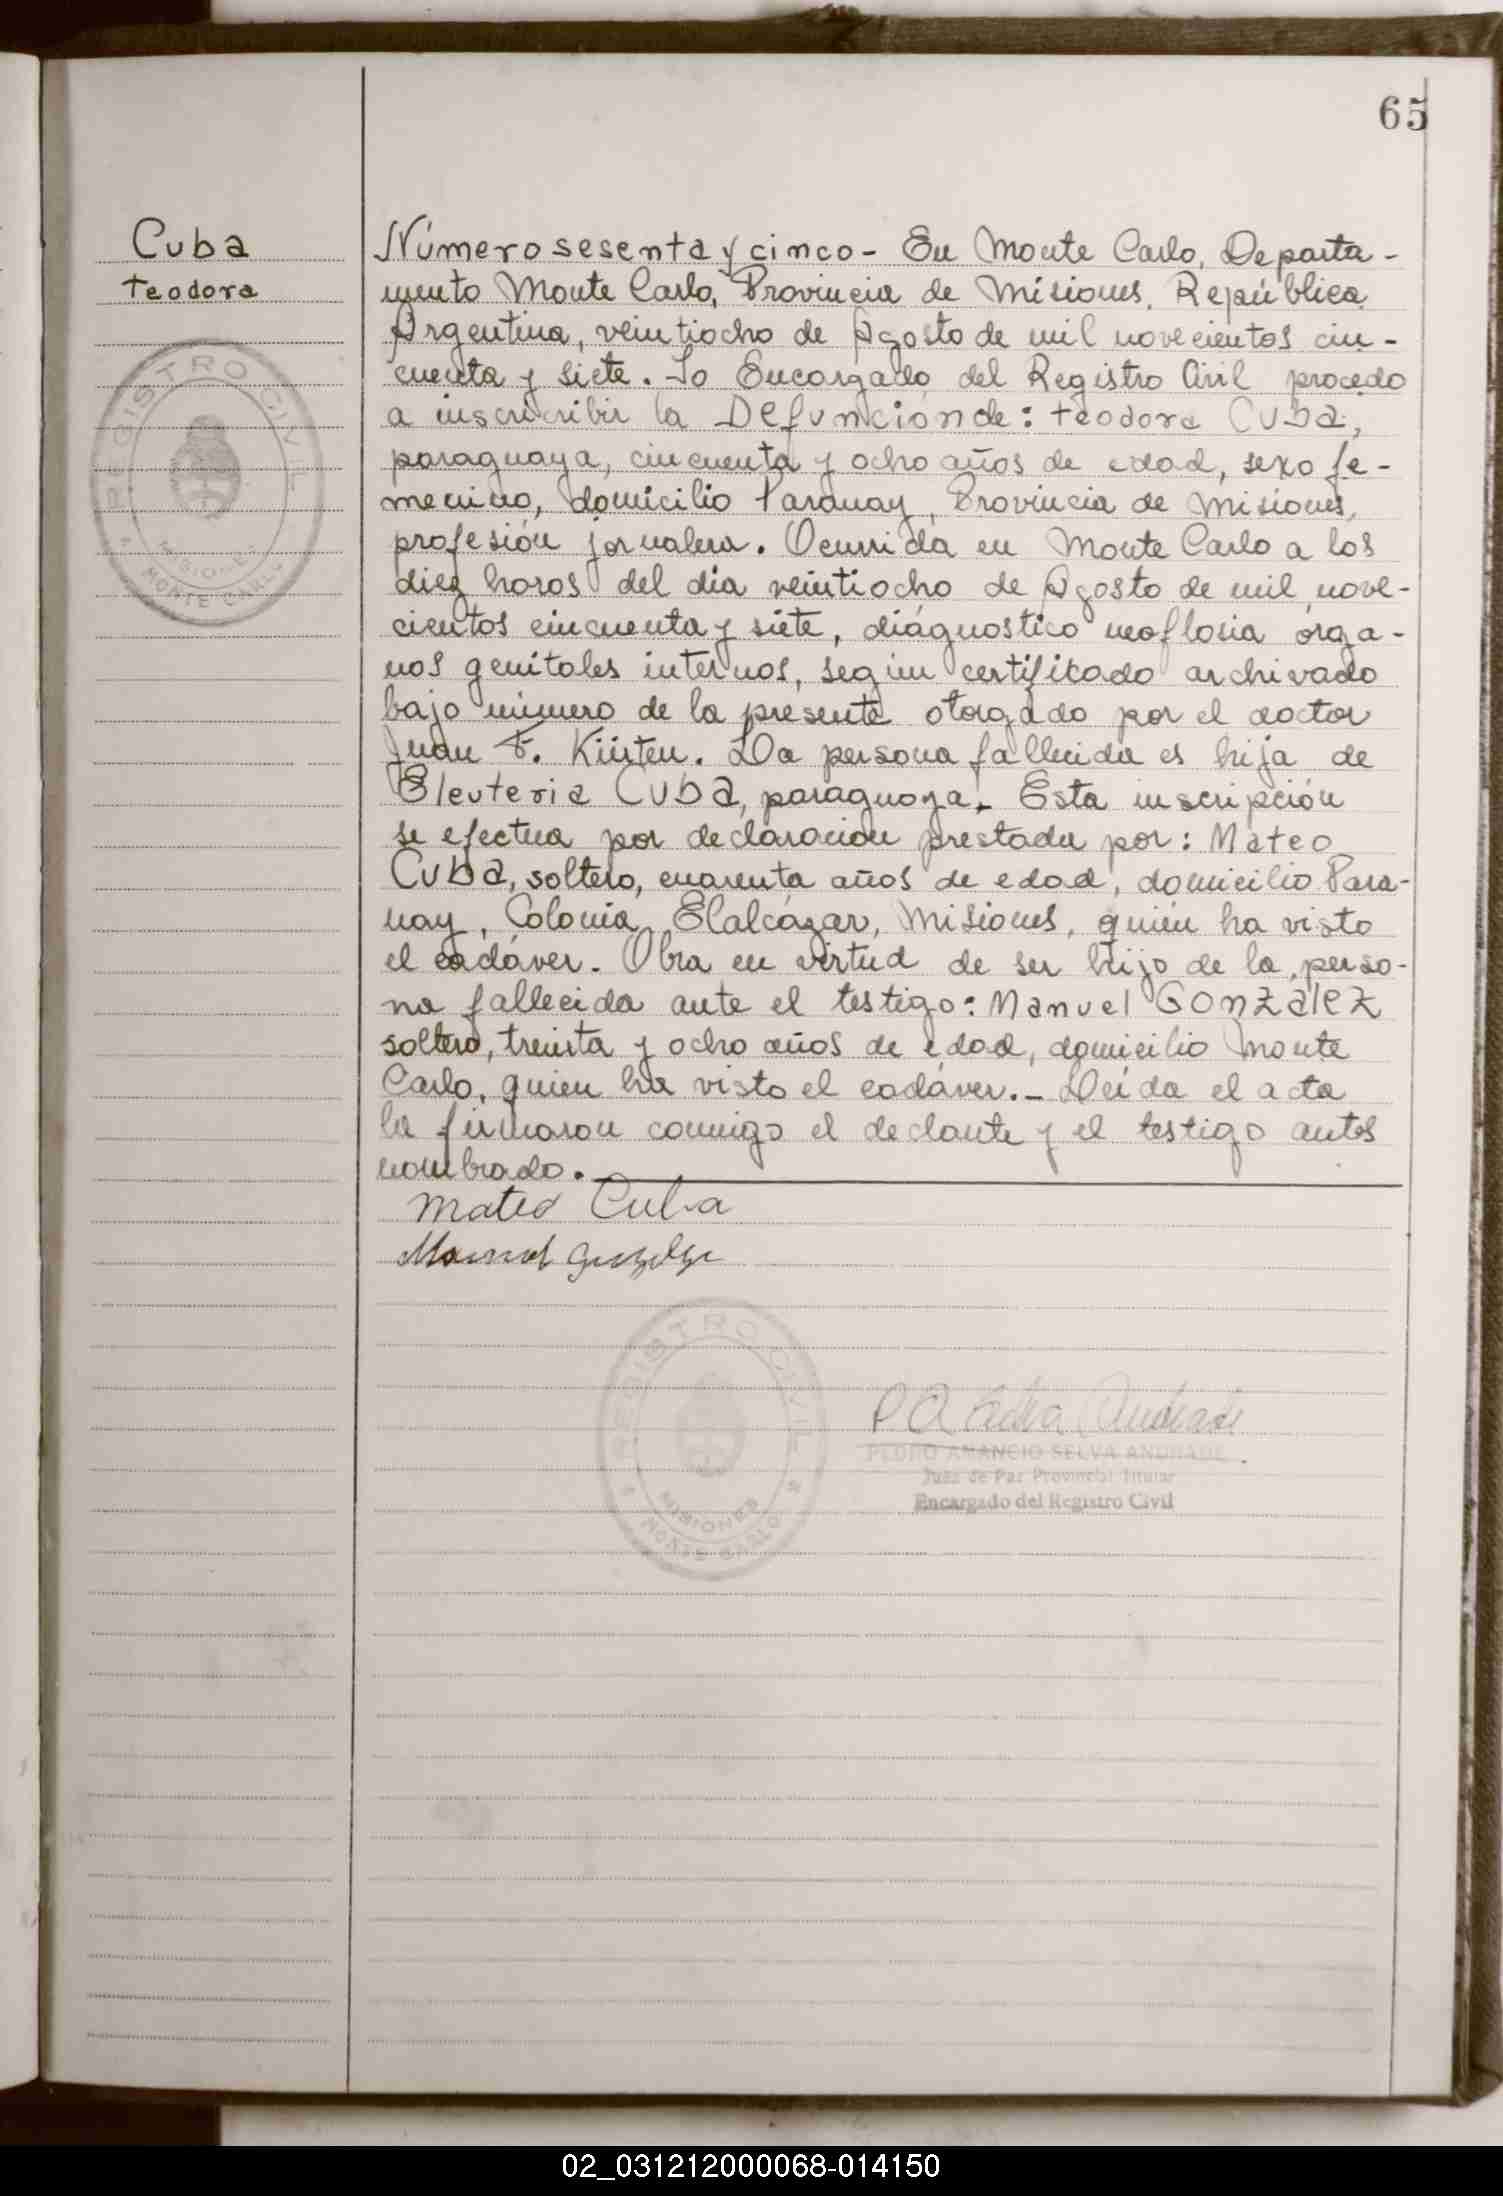 65
Cuba
Teodora
Número sesenta y cinco - En Monte Carlo, Departa-
mento Monte Carlo, Provincia de Misiones, República
Argentina, veintiocho de Agosto de mil novecientos cin-
cuenta y siete. Yo Encargado del Registro Civil procedo
a inscricribir la Defunción de: Teodora Cuba,
paraguaya, cincuenta y ocho años de edad, sexo fe-
menino, domicilio Paranay, Provincia de Misiones,
profesión jornalera. Ocurrida en Monte Carlo a los
diez horas del día veintiocho de Agosto de mil nove-
cientos cincuenta y siete, diágnostico neoflasia orga-
nos genitales internos, segun certificado archivado
bajo número de la presente otorgado por el doctor
Juan F. Kürten. La persona fallecida es hija de
Eleuteria Cuba, paraguaya. Esta inscripción
se efectua por declaración prestada por: Mateo
Cuba, soltero, cuarenta años de edad, domicilio Para-
nay, Colonia Elalcázar, Misiones, quién ha visto
el cadáver. Obra en virtud de ser hijo de la perso-
na fallecida ante el testigo: Manuel Gonzalez
soltero, treinta y ocho años de edad, domicilio Monte
Carlo, quien ha visto el cadáver. - Leída el acta
la firmaron conmigo el declante y el testigo antes
nombrado.
Mateo Cuba
Manuel Gonzalez
REGISTRO CIVIL
MISIONES
MONTE CARLO
REGISTRO CIVIL
MISIONES
MONTE CARLO
P A Selva Andrade
PEDRO AMANCIO SELVA ANDRADE
Juez de Paz Provincial Titular
Encargado del Registro Civil
02_031212000068-014150